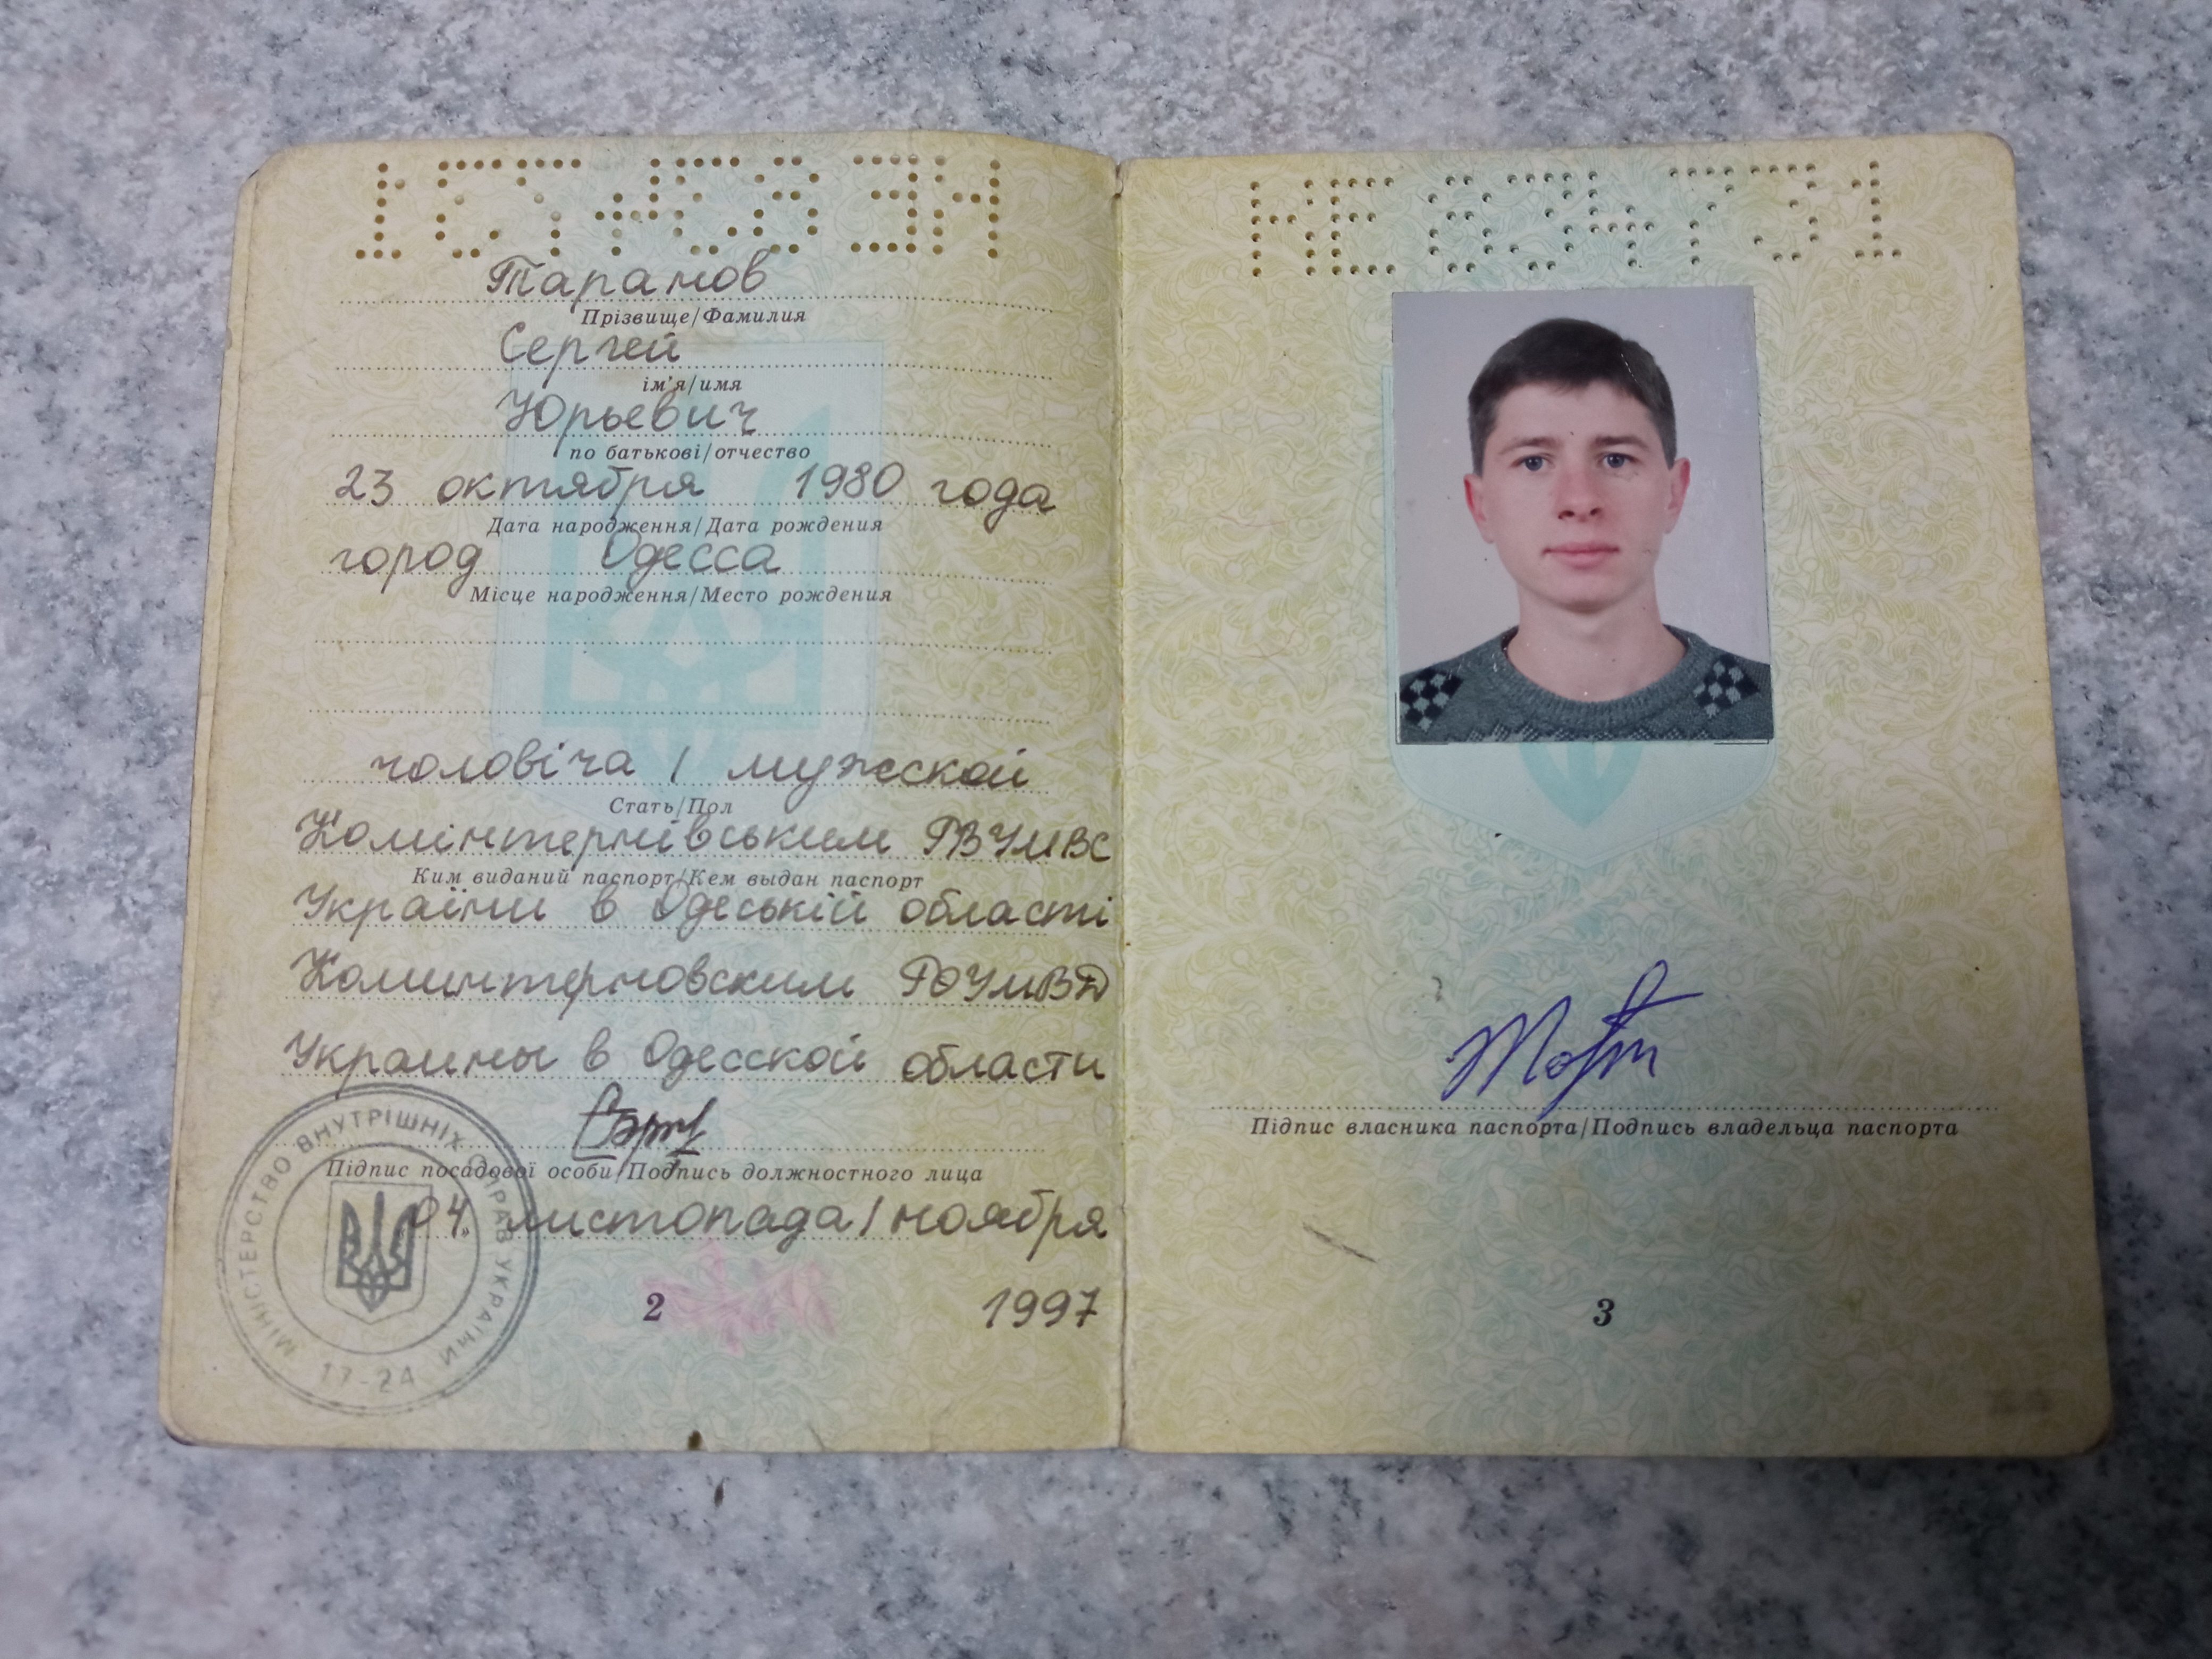 Таранов
Прізвище/Фамилия
Сергей
ім'я/имя
Юрьевич
по батькові/отчество
23 октября 1980 года
Дата народження/Дата рождения
город Одесса
Місце народження/Место рождения
чоловіча / мужской
Стать/Пол
Комінтернівським РВУМВС
Ким виданий паспорт/Кем выдан паспорт
України в Одеській області
Коминтерновским РОУМВД
Украины в Одесской области
Підпис посадової особи/Подпись должностного лица
04 листопада / ноября
1997
2
МІНІСТЕРСТВО ВНУТРІШНІХ СПРАВ УКРАЇНИ
17-24
КЕ 834731
Підпис власника паспорта/Подпись владельца паспорта
3